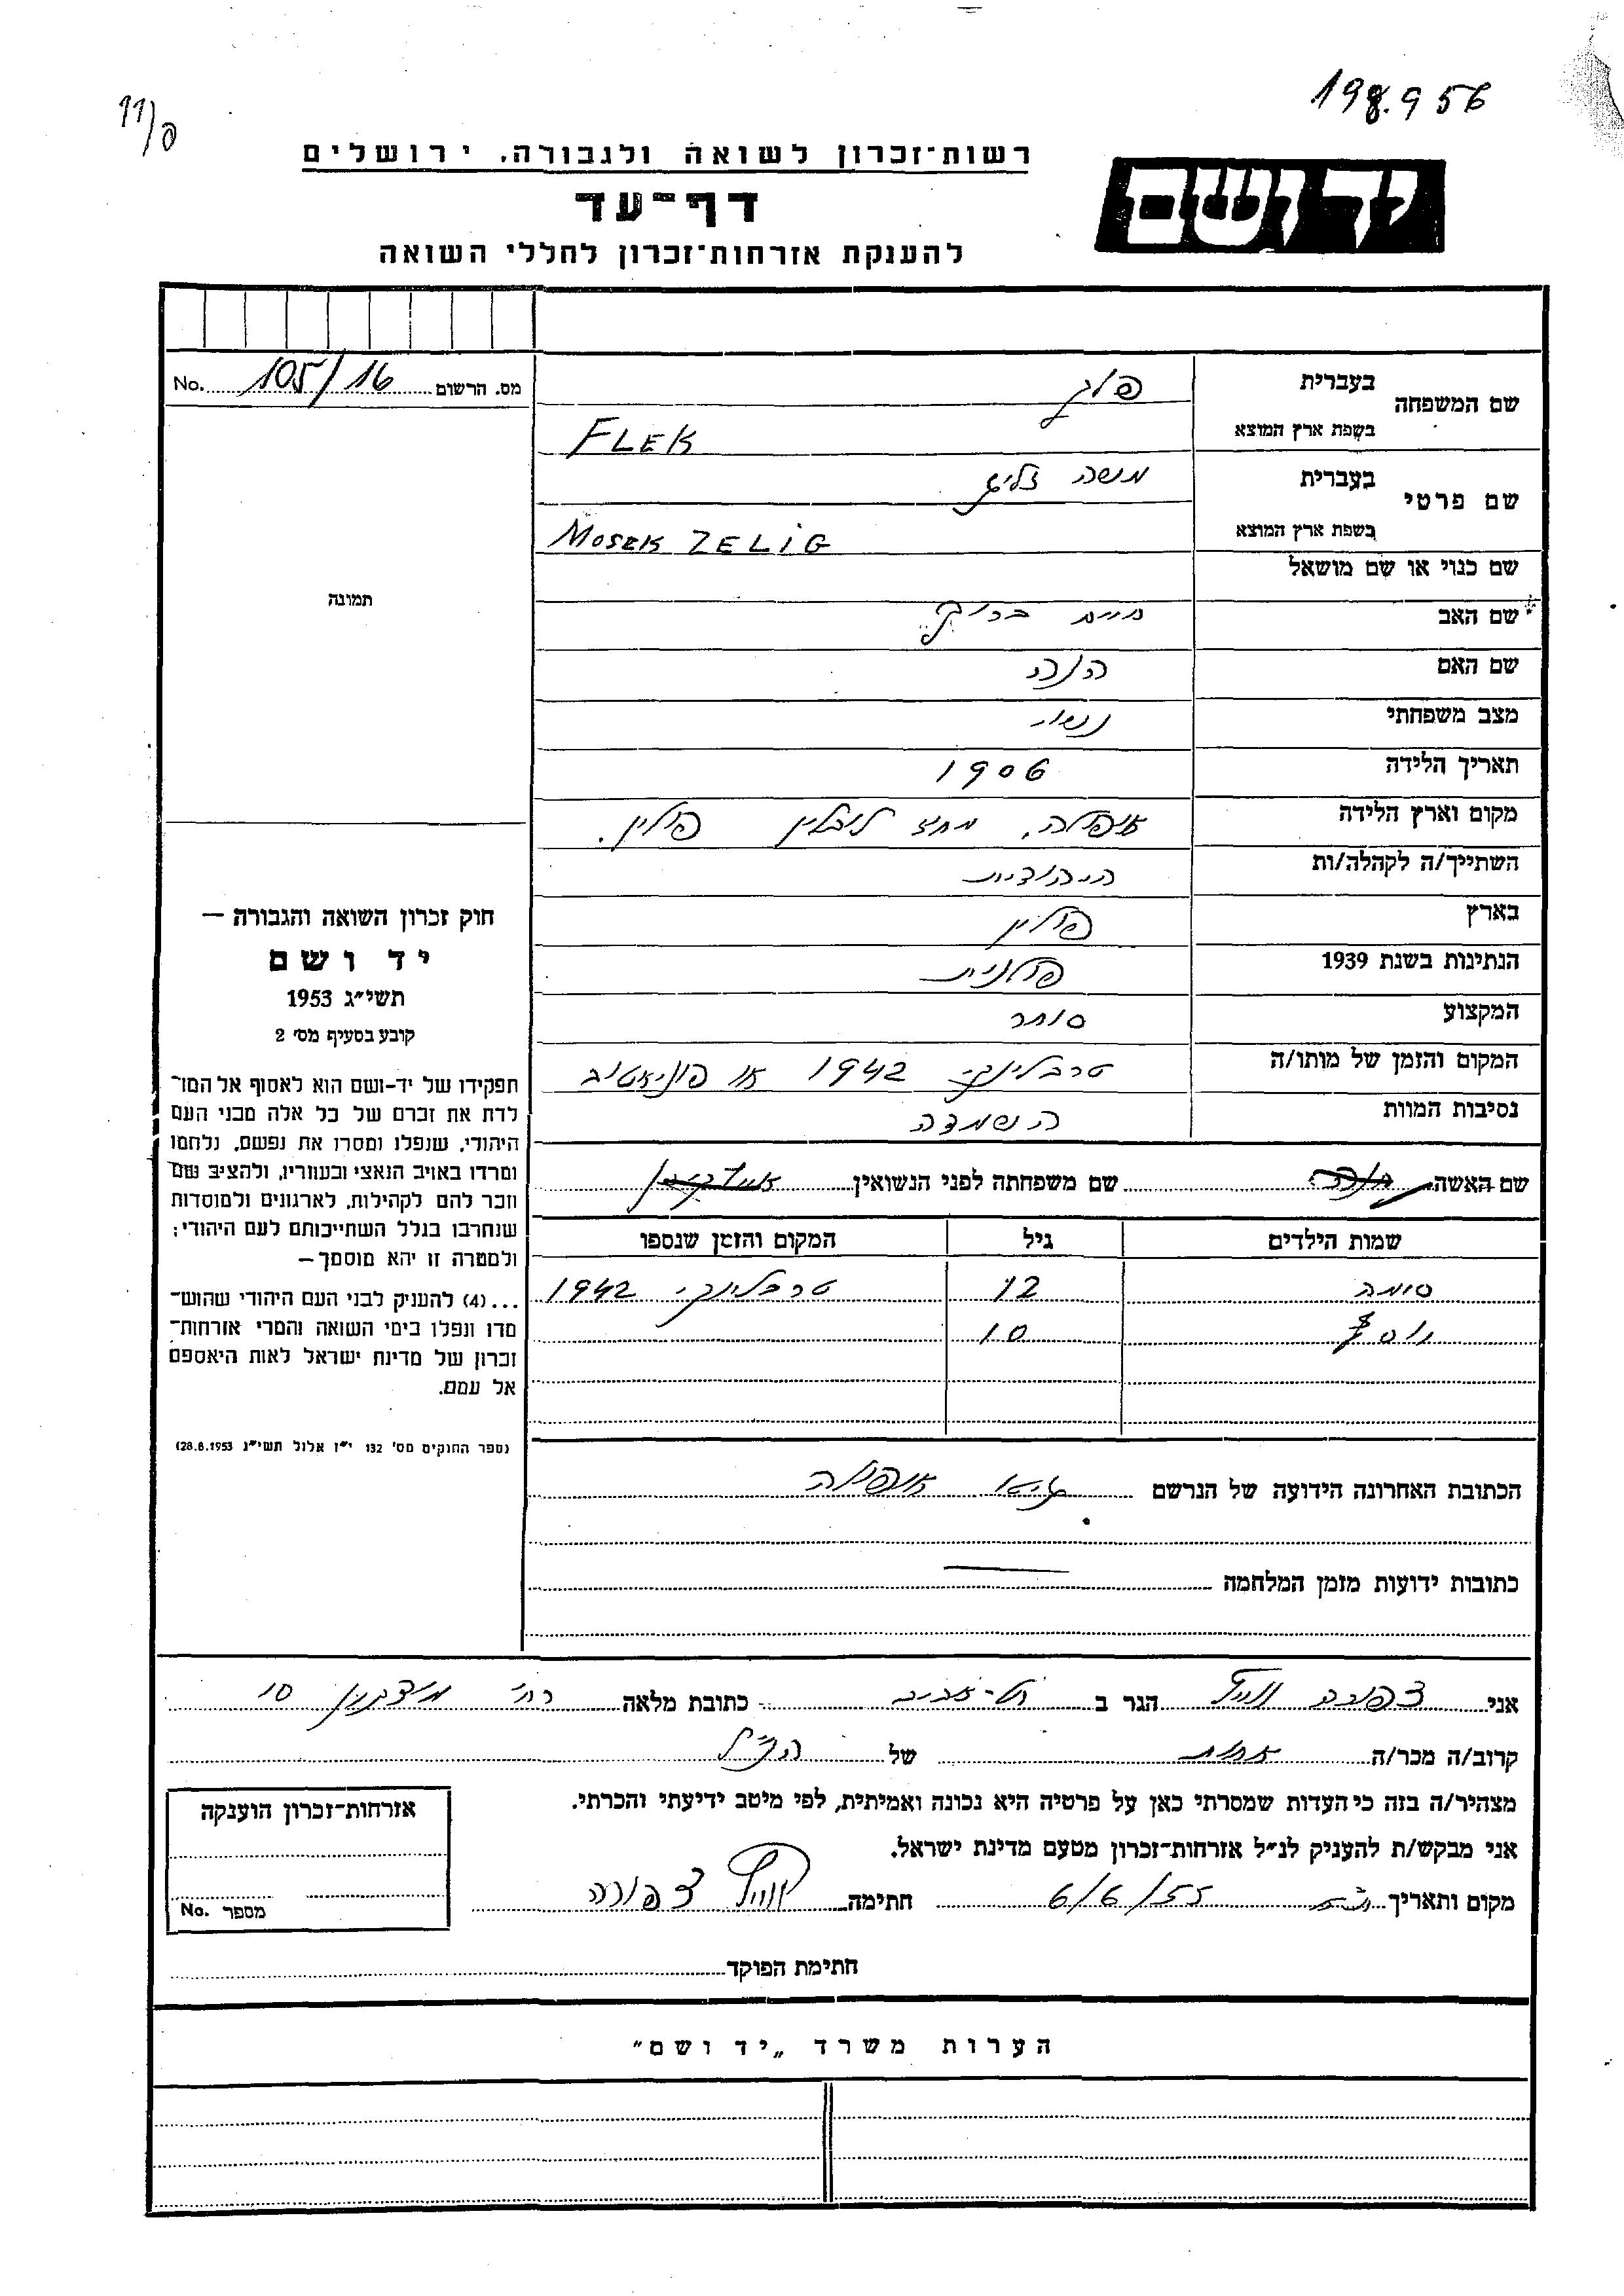 198.956
פ/11
רשות־זכרון לשואה ולגבורה, ירושלים
יד ושם
דף־עד
להענקת אזרחות־זכרון לחללי השואה
מס. הרשום 105/16 No.
שם המשפחה
בעברית פלק
בשפת ארץ המוצא FLEK
שם פרטי
בעברית משה זליג
בשפת ארץ המוצא MOSEK ZELIG
שם כנוי או שם מושאל
שם האב חיים ברוך
שם האם חנה
מצב משפחתי נשוי
תאריך הלידה 1906
מקום וארץ הלידה אופולה, מחוז לובלין פולין.
השתייך/ה לקהלה/ות היהודית
בארץ פולין
הנתינות בשנת 1939 פולנית
המקצוע סוחר
המקום והזמן של מותו/ה טרבלינקי 1942 או פוניאטוב
נסיבות המוות השמדה
שם האשה שם משפחתה לפני הנשואין
שמות הילדים גיל המקום והזמן שנספו
סימה 12 טרבלינקי 1942
10
הכתובת האחרונה הידועה של הנרשם אופולה
כתובות ידועות מזמן המלחמה
תמונה
חוק זכרון השואה והגבורה —
יד ושם
תשי״ג 1953
קובע בסעיף מס׳ 2
תפקידו של יד-ושם הוא לאסוף אל המו־
לדת את זכרם של כל אלה מבני העם
היהודי, שנפלו ומסרו את נפשם, נלחמו
ומרדו באויב הנאצי ובעוזריו, ולהציב שם
וזכר להם לקהילות, לארגונים ולמוסדות
שנחרבו בגלל השתייכותם לעם היהודי;
ולמטרה זו יהא מוסמך—
...(4) להעניק לבני העם היהודי שהוש־
מדו ונפלו בימי השואה והמרי אזרחות־
זכרון של מדינת ישראל לאות היאספם
אל עמם.
(ספר החוקים מס׳ 132 י״ז אלול תשי״ג 28.8.1953)
אני צפורה וייל הגר ב תל-אביב כתובת מלאה רח׳ 10
קרוב/ה מכר/ה אחות של הנ״ל
מצהיר/ה בזה כי העדות שמסרתי כאן על פרטיה היא נכונה ואמיתית, לפי מיטב ידיעתי והכרתי.
אני מבקש/ת להעניק לנ״ל אזרחות־זכרון מטעם מדינת ישראל.
מקום ותאריך 6/6/55 חתימה וייל צפורה
חתימת הפוקד
אזרחות־זכרון הוענקה
מספר No.
הערות משרד „יד ושם״